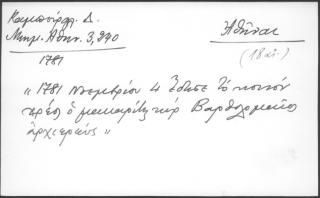 Καμπούρογλ. Δ.
Μνημ. Ἀθην. 3, 240
Ἀθῆναι
1781
(18 αἰ.)
" 1781 Νοεμβρίου 4 ἔδωσε τὸ κοινὸν
χρέος ὁ μακαρίτης κὺρ Βαρθολομαῖος
ἀρχιερεύς "